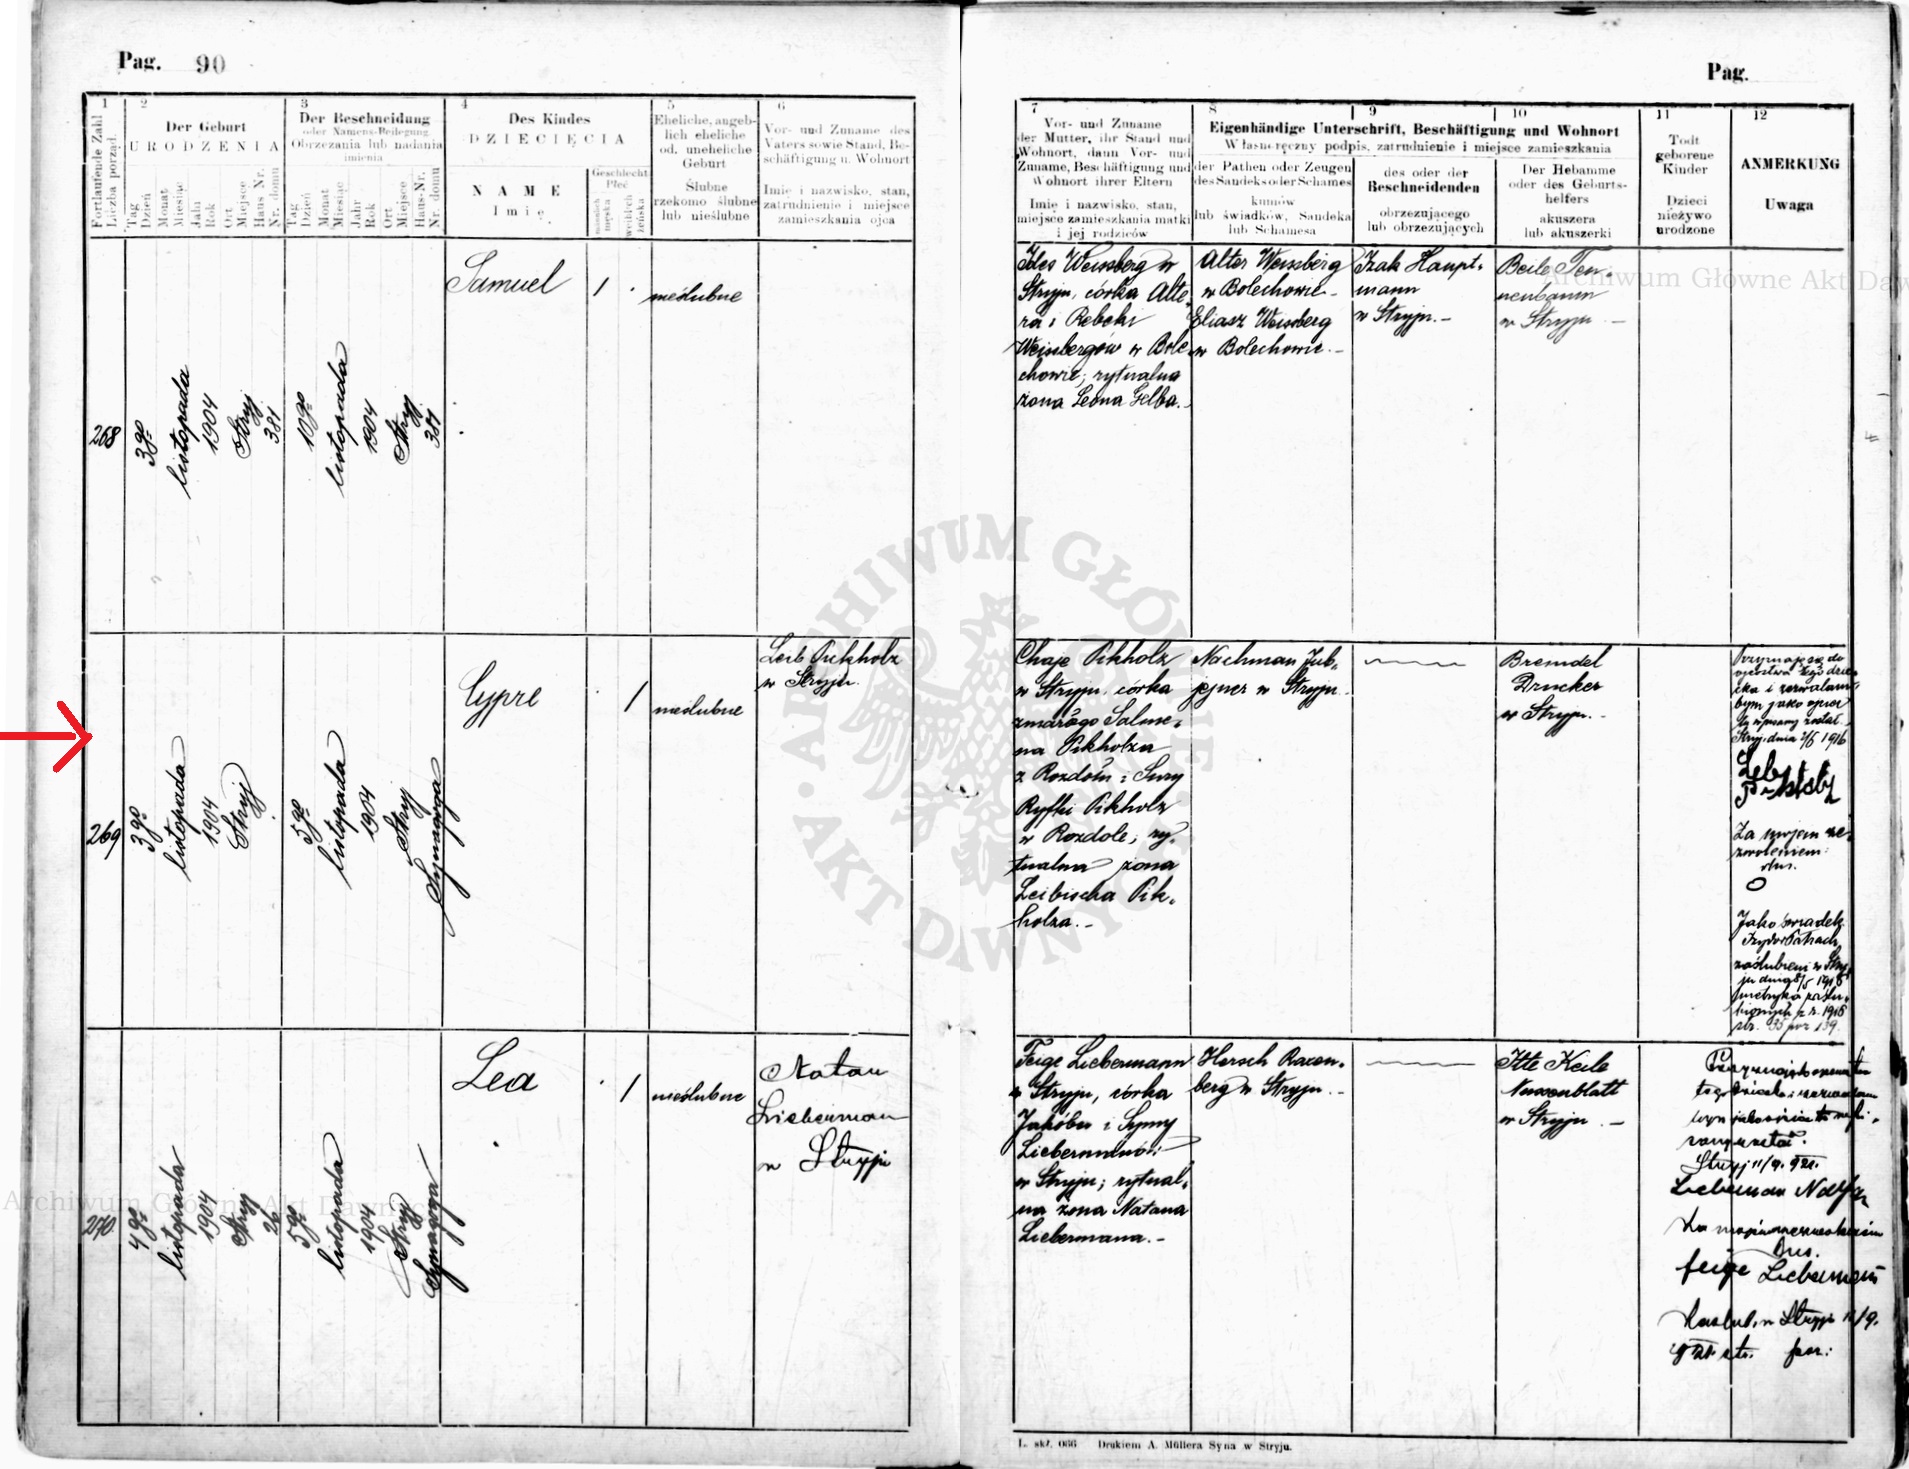 Pag. 90
Pag.
1
Fortlaufende Zahl
Liczba porząd.
2
Der Geburt
URODZENIA
Tag
Dzień
Monat
Miesiąc
Jahr
Rok
Ort
Miejsce
Haus Nr.
Nr. domu
3
Der Beschneidung
oder Namens-Beilegung
Obrzezania lub nadania
imienia
Tag
Dzień
Monat
Miesiąc
Jahr
Rok
Ort
Miejsce
Haus-Nr.
Nr. domu
4
Des Kindes
DZIECIĘCIA
NAME
Imię
Geschlecht
Płeć
männlich
męska
weiblich
żeńska
5
Eheliche, angeb-
lich eheliche
od. uneheliche
Geburt
Ślubne
rzekomo ślubne
lub nieślubne
6
Vor- und Zuname des
Vaters sowie Stand, Be-
schäftigung u. Wohnort
Imię i nazwisko, stan,
zatrudnienie i miejsce
zamieszkania ojca
7
Vor- und Zuname
der Mutter, ihr Stand und
Wohnort, dann Vor- und
Zuname, Beschäftigung und
Wohnort ihrer Eltern
Imię i nazwisko, stan,
miejsce zamieszkania matki
i jej rodziców
8
9
10
Eigenhändige Unterschrift, Beschäftigung und Wohnort
Własnoręczny podpis, zatrudnienie i miejsce zamieszkania
der Pathen oder Zeugen
des Sandeks oder Schames
kumów
lub świadków, Sandeka
lub Schamesa
des oder der
Beschneidenden
obrzezującego
lub obrzezujących
Der Hebamme
oder des Geburts-
helfers
akuszera
lub akuszerki
11
Todt
geborene
Kinder
Dzieci
nieżywo
urodzone
12
ANMERKUNG
Uwaga
268
3go
listopada
1904
Stryj
381
10go
listopada
1904
Stryj
381
Samuel
1
nieślubne
Ides Weissberg w
Stryju, córka Alte-
ra i Rebeki
Weissbergów w Bole-
chowie; rytualna
żona Leona Gelba.-
Alter Weissberg
w Bolechowie-
Eliasz Weissberg
w Bolechowie.-
Izak Haupt-
mann
w Stryju.-
Beile Ten-
nenbaum
w Stryju -
269
3go
listopada
1904
Stryj
5go
listopada
1904
Stryj
Synagoga
Cypre
1
nieślubne
Leib Pickholz
w Stryju.
Chaje Pikholz
w Stryju, córka
zmarłego Salmo-
na Pikholza
z Rozdołu i Sury
Ryfki Pikholz
w Rozdole; ry-
tualna żona
Leibischa Pik-
holza.-
Nachman Jub-
jejner w Stryju.
Breindel
Drucker
w Stryju.-
Przyznaję się do
ojcostwa tego dzie-
cka i zezwalam
bym jako ojciec
tu wpisany został
Stryj dnia 2/5 1916
Za mojem ze-
zwoleniem:
O
Jako świadek
zaślubieni w Stry-
ju dnia 8/5 1916
metryka zaślu-
bionych z r. 1916
str. 35 poz 139.
270
4go
listopada
1904
Stryj
26
5go
listopada
1904
Stryj
Synagoga
Lea
1
nieślubne
Natan
Lieberman
w Stryju
Feige Liebermann
w Stryju, córka
Jakóba i Symy
Liebermanów
w Stryju; rytual-
na żona Natana
Liebermana.-
Hersch Rosen-
berg w Stryju.-
Itte Keile
Nussenblatt
w Stryju -
tego dziecka i zezwalam
Stryj 11/9. 921.
Lieberman Natan
Feige Lieberman
w Stryju 11/9.
921 str. poz:
L. skł. 066 Drukiem A. Müllera Syna w Stryju.
ARCHIWUM GŁÓWNE AKT DAWNYCH
Archiwum Główne Akt Daw
Archiwum Główne Akt Dawn